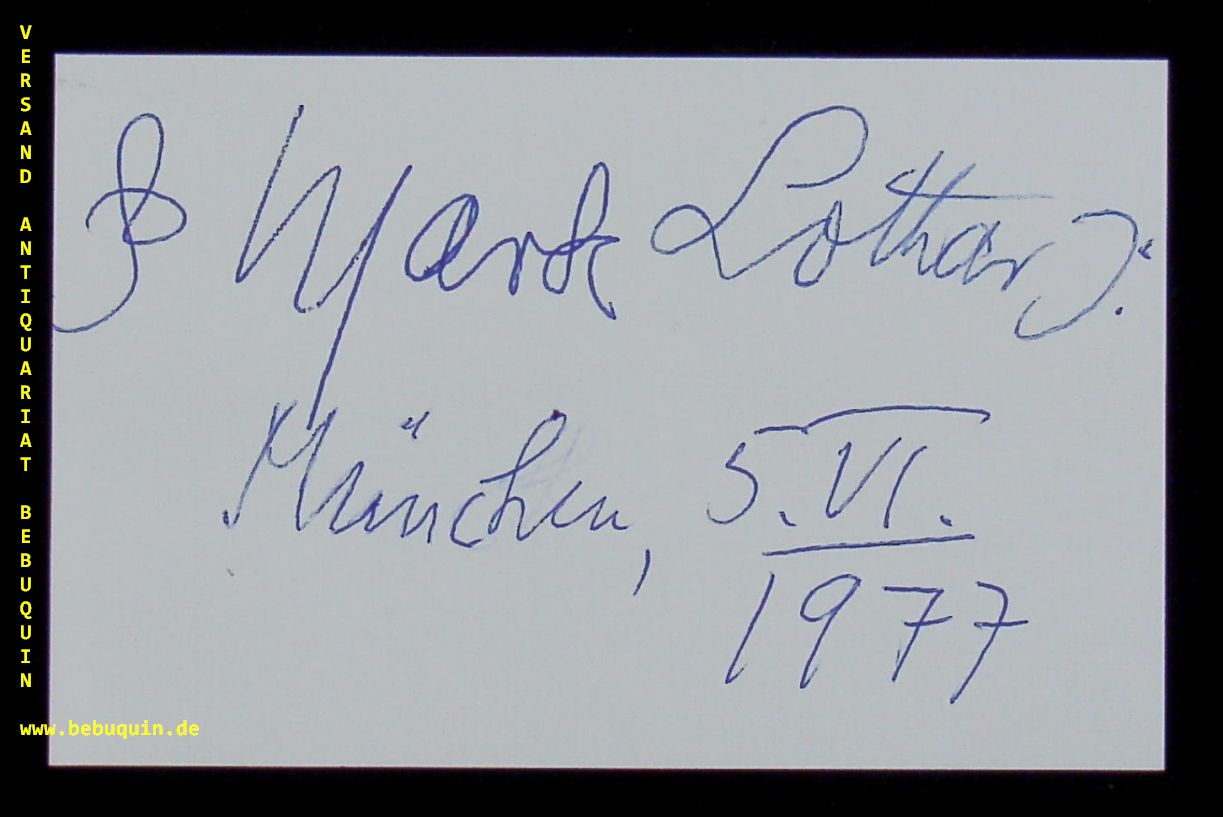 VERSAND ANTIQUARIAT BEBUQUIN
www.bebuquin.de
Mark Lothar
München, 5.VI.
1977